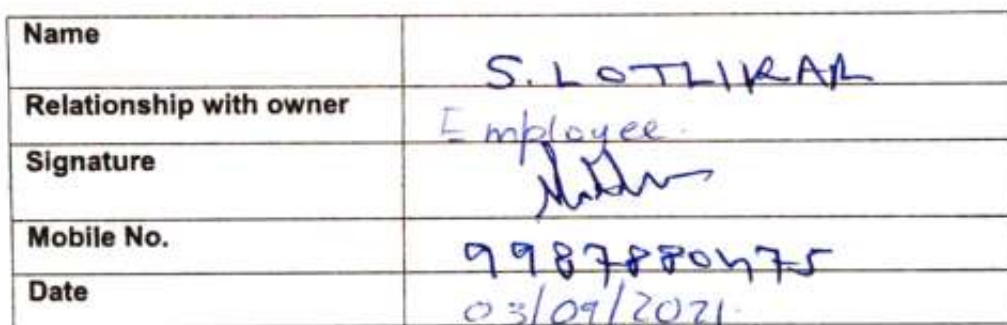 Name S. LOTLIKAR
Relationship with owner Employee.
Signature
Mobile No. 9987880475
Date 03/09/2021.